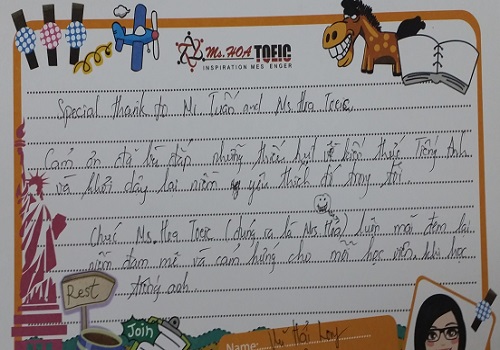 Ms. HOA TOEIC
INSPIRATION MESSENGER
Special thank to Mr. Tuấn and Ms. Hoa Toeic.
Cảm ơn đã bù đắp những thiếu hụt về kiến thức Tiếng Anh
và khơi dậy lại niềm yêu thích đó trong tôi.
Chúc Ms. Hoa Toeic (đúng ra là Ms. Hoà) luôn mãi đem lại
niềm đam mê và cảm hứng cho mỗi học viên khi học
tiếng anh.
Rest
Join
Name: